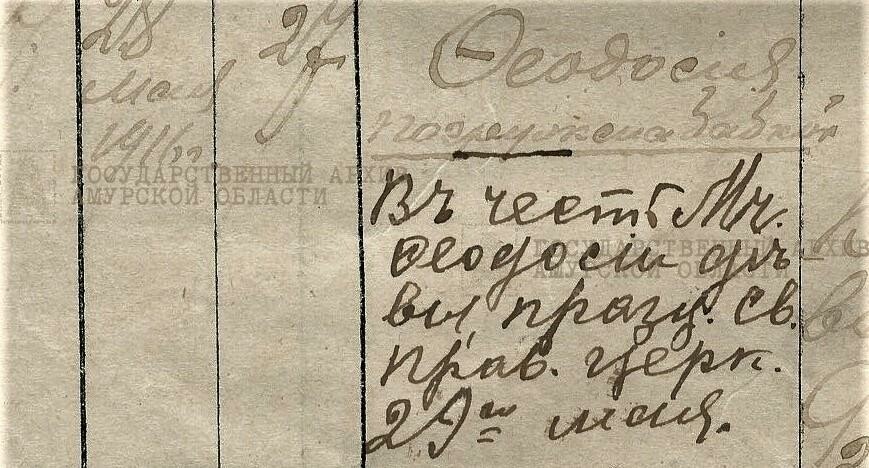 28
мая
1916 г.
27
Ѳеодосія
погружена бабкой
ГОСУДАРСТВЕННЫЙ АРХИВ
АМУРСКОЙ ОБЛАСТИ
Въ честь Мч.
Ѳеодосіи дѣ-
вы, празд. св.
прав. церк.
29го мая.
ГОСУДАРСТВЕННЫЙ АРХИВ
АМУРСКОЙ ОБЛАСТИ